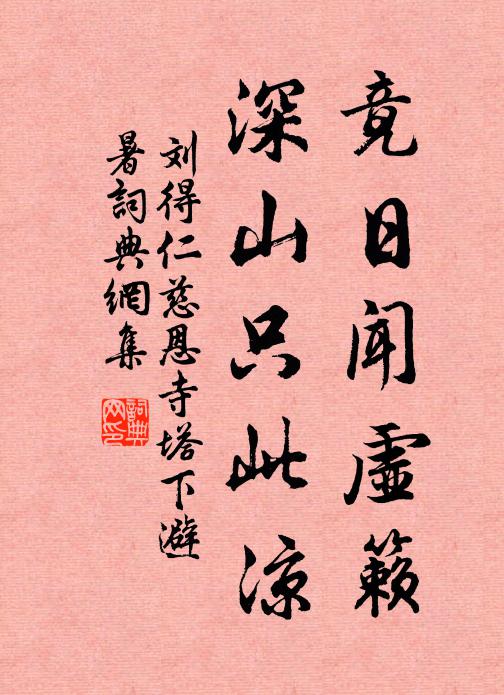 竟日闻虚籁
深山只此凉
刘得仁慈恩寺塔下避
暑詞典網集
詞典网印